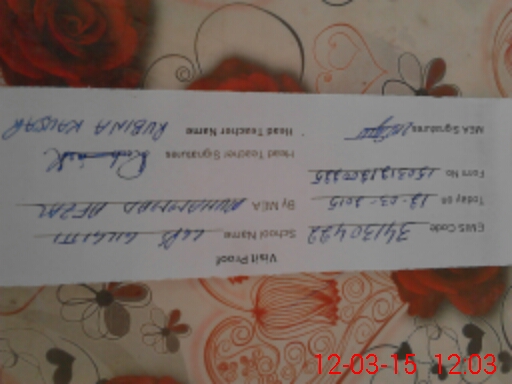 Visit Proof
EMIS Code 34130422 School Name
Today on 12-03-2015 By MEA MUHAMMAD AFZAL
Form No Head Teacher Signatures
MEA Signatures Head Teacher Name RUBINA KAUSAR
12-03-15 12:03